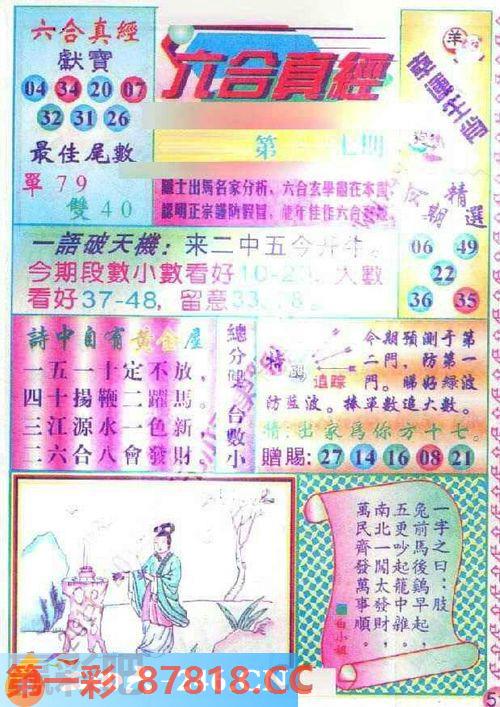 六合真經
獻寶
04 34 20 07
32 31 26
最佳尾數
單79
雙40
六合真經
第 七期
羊
精選
06 49
22
36 35
一語破天機：来二中五今开牛。
今期段數小數看好10-2 大數
看好37-48, 留意33
詩中自有黃金屋
一五一十定不放，
四十揚鞭二躍馬。
三江源水一色新，
二六合八會發財
總分雙
合數小
特碼
追踪
今期預測于第
二門，防第一
門。睇好綠波
防藍波。棒軍數追大數。
情：出家為你方十七。
贈賜：27 14 16 08 21
一字之曰：肢
兔前馬後鷄早起，
五更吵起龍中雜。
南北一闖太發財，
萬民齊發萬事順。
白小姐
第一彩 87818.CC
5